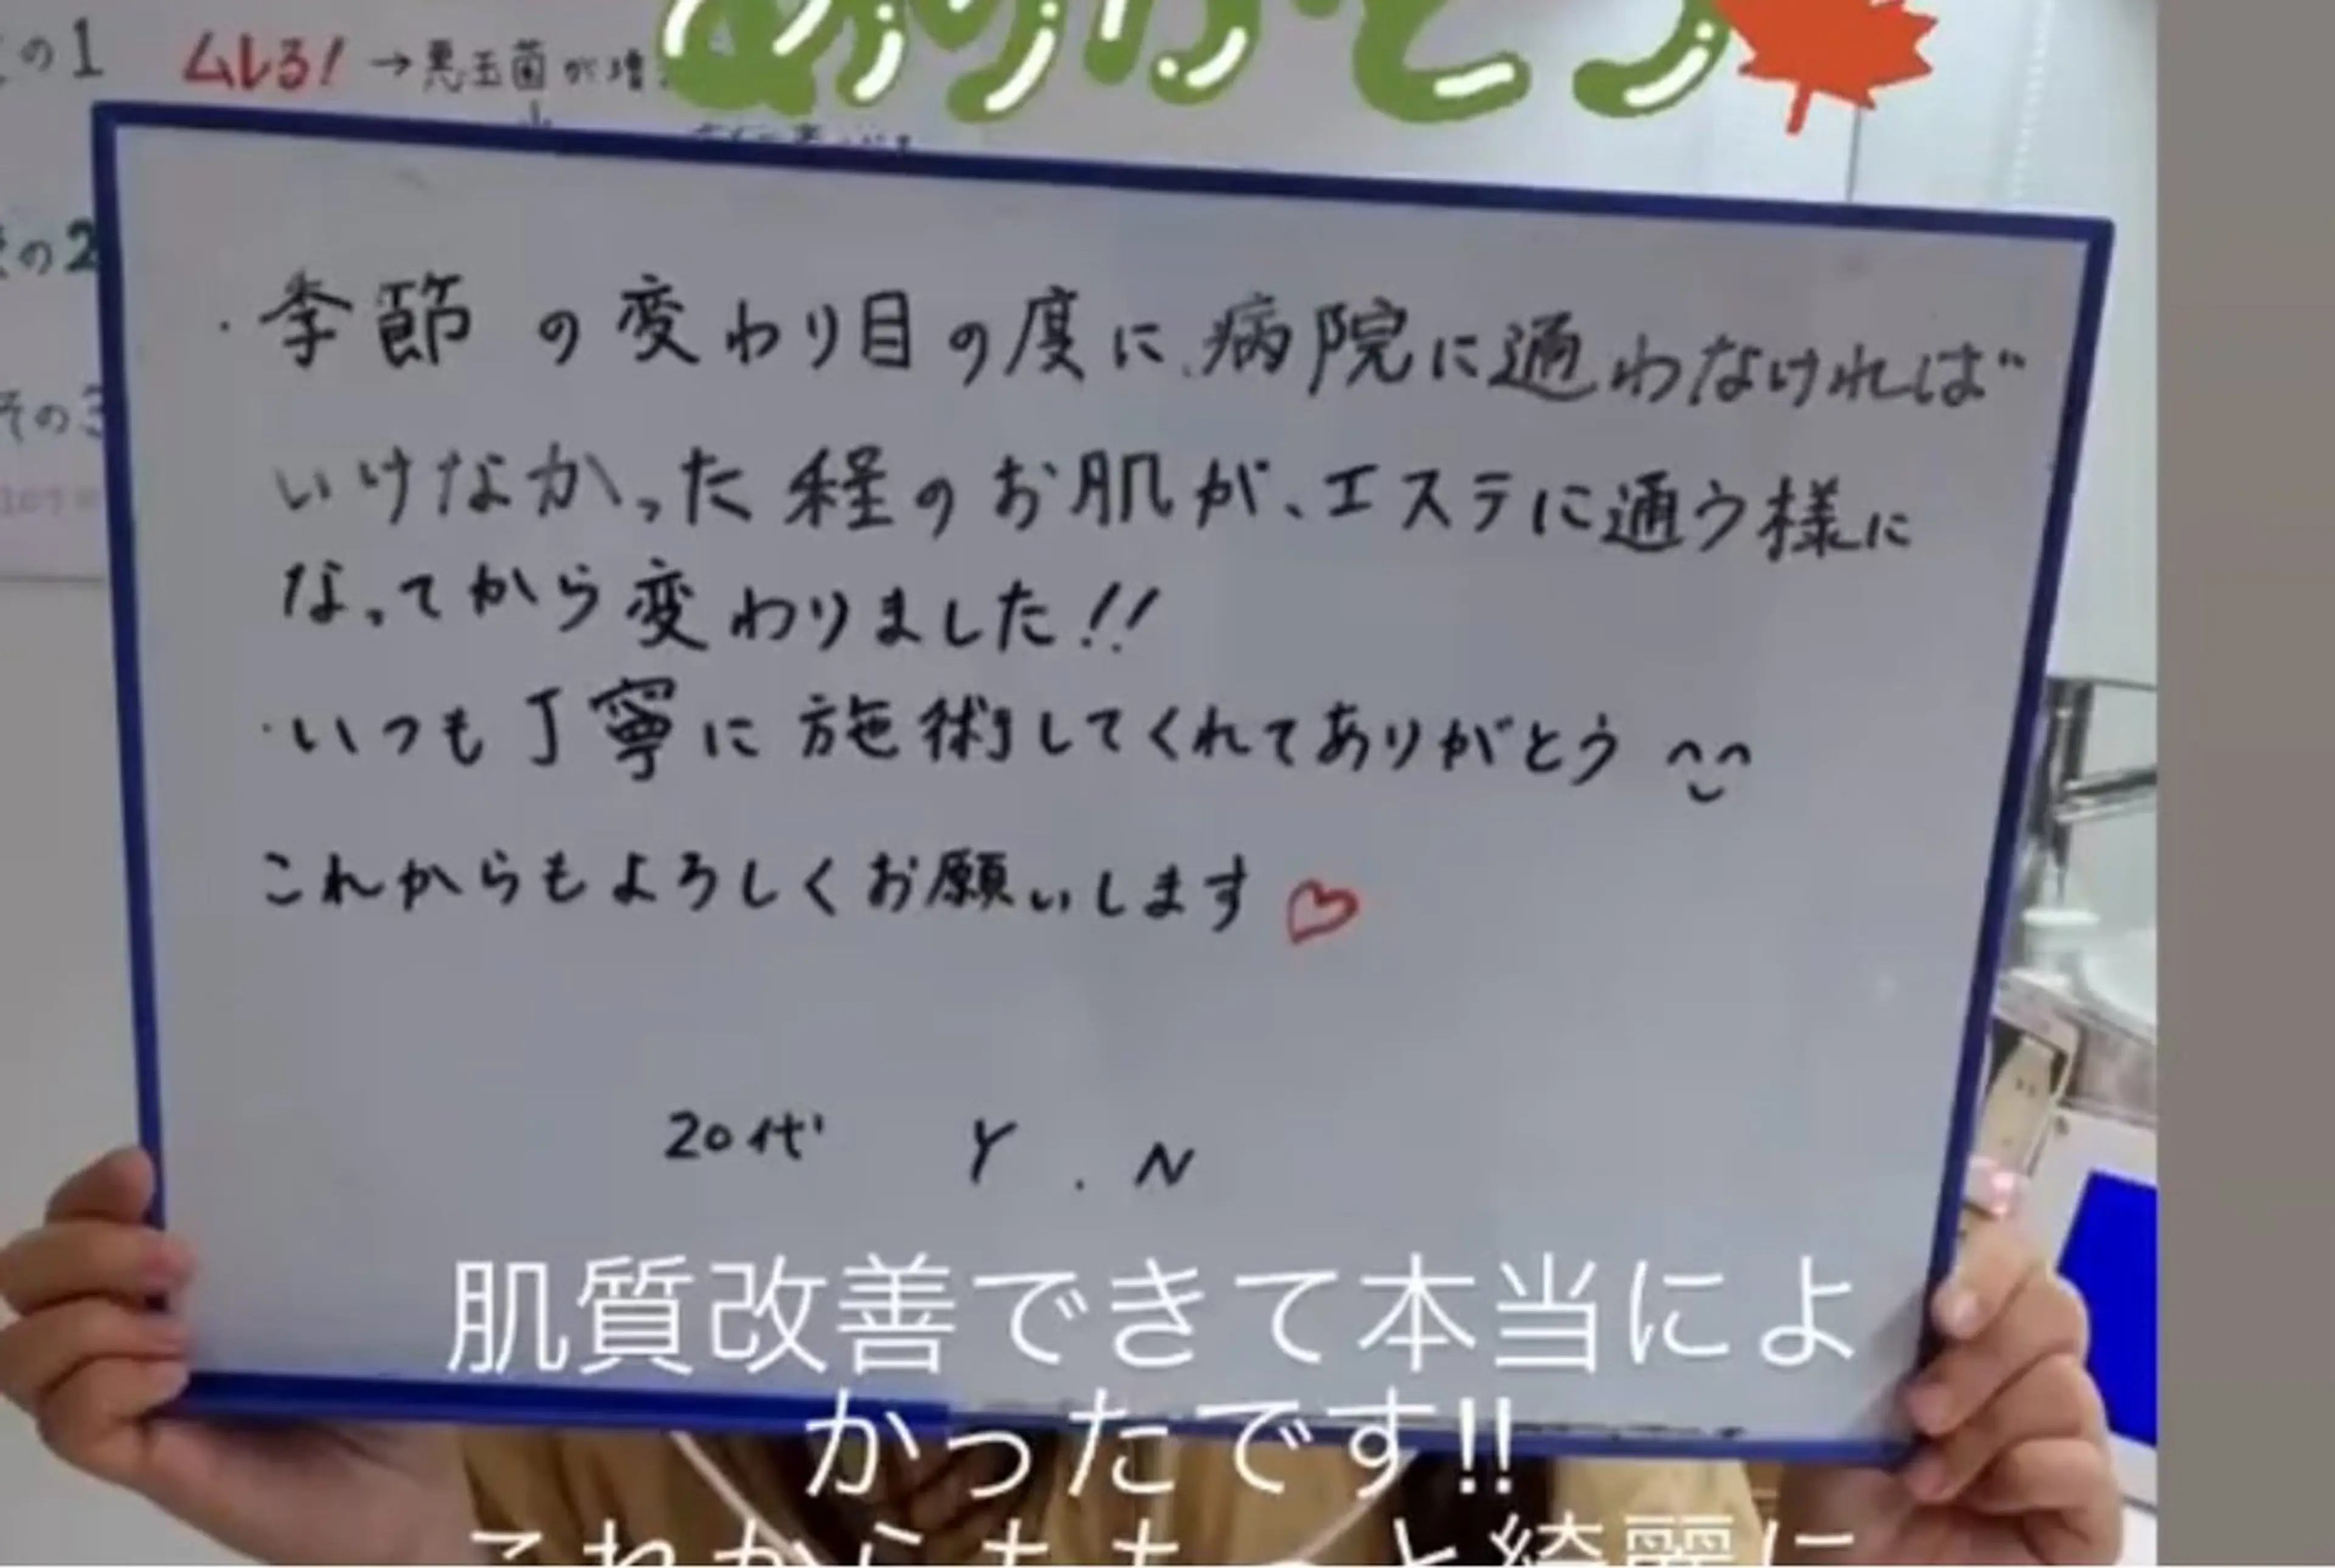 ありがとう
の1 ムレる! →悪玉菌が増
の2
その3
・季節の変わり目の度に、病院に通わなければ
いけなかった程のお肌が、エステに通う様に
なってから変わりました!!
・いつも丁寧に施術してくれてありがとう
これからもよろしくお願いします♡
20代 Y.N
肌質改善できて本当によ
かったです!!
これからももっと綺麗に